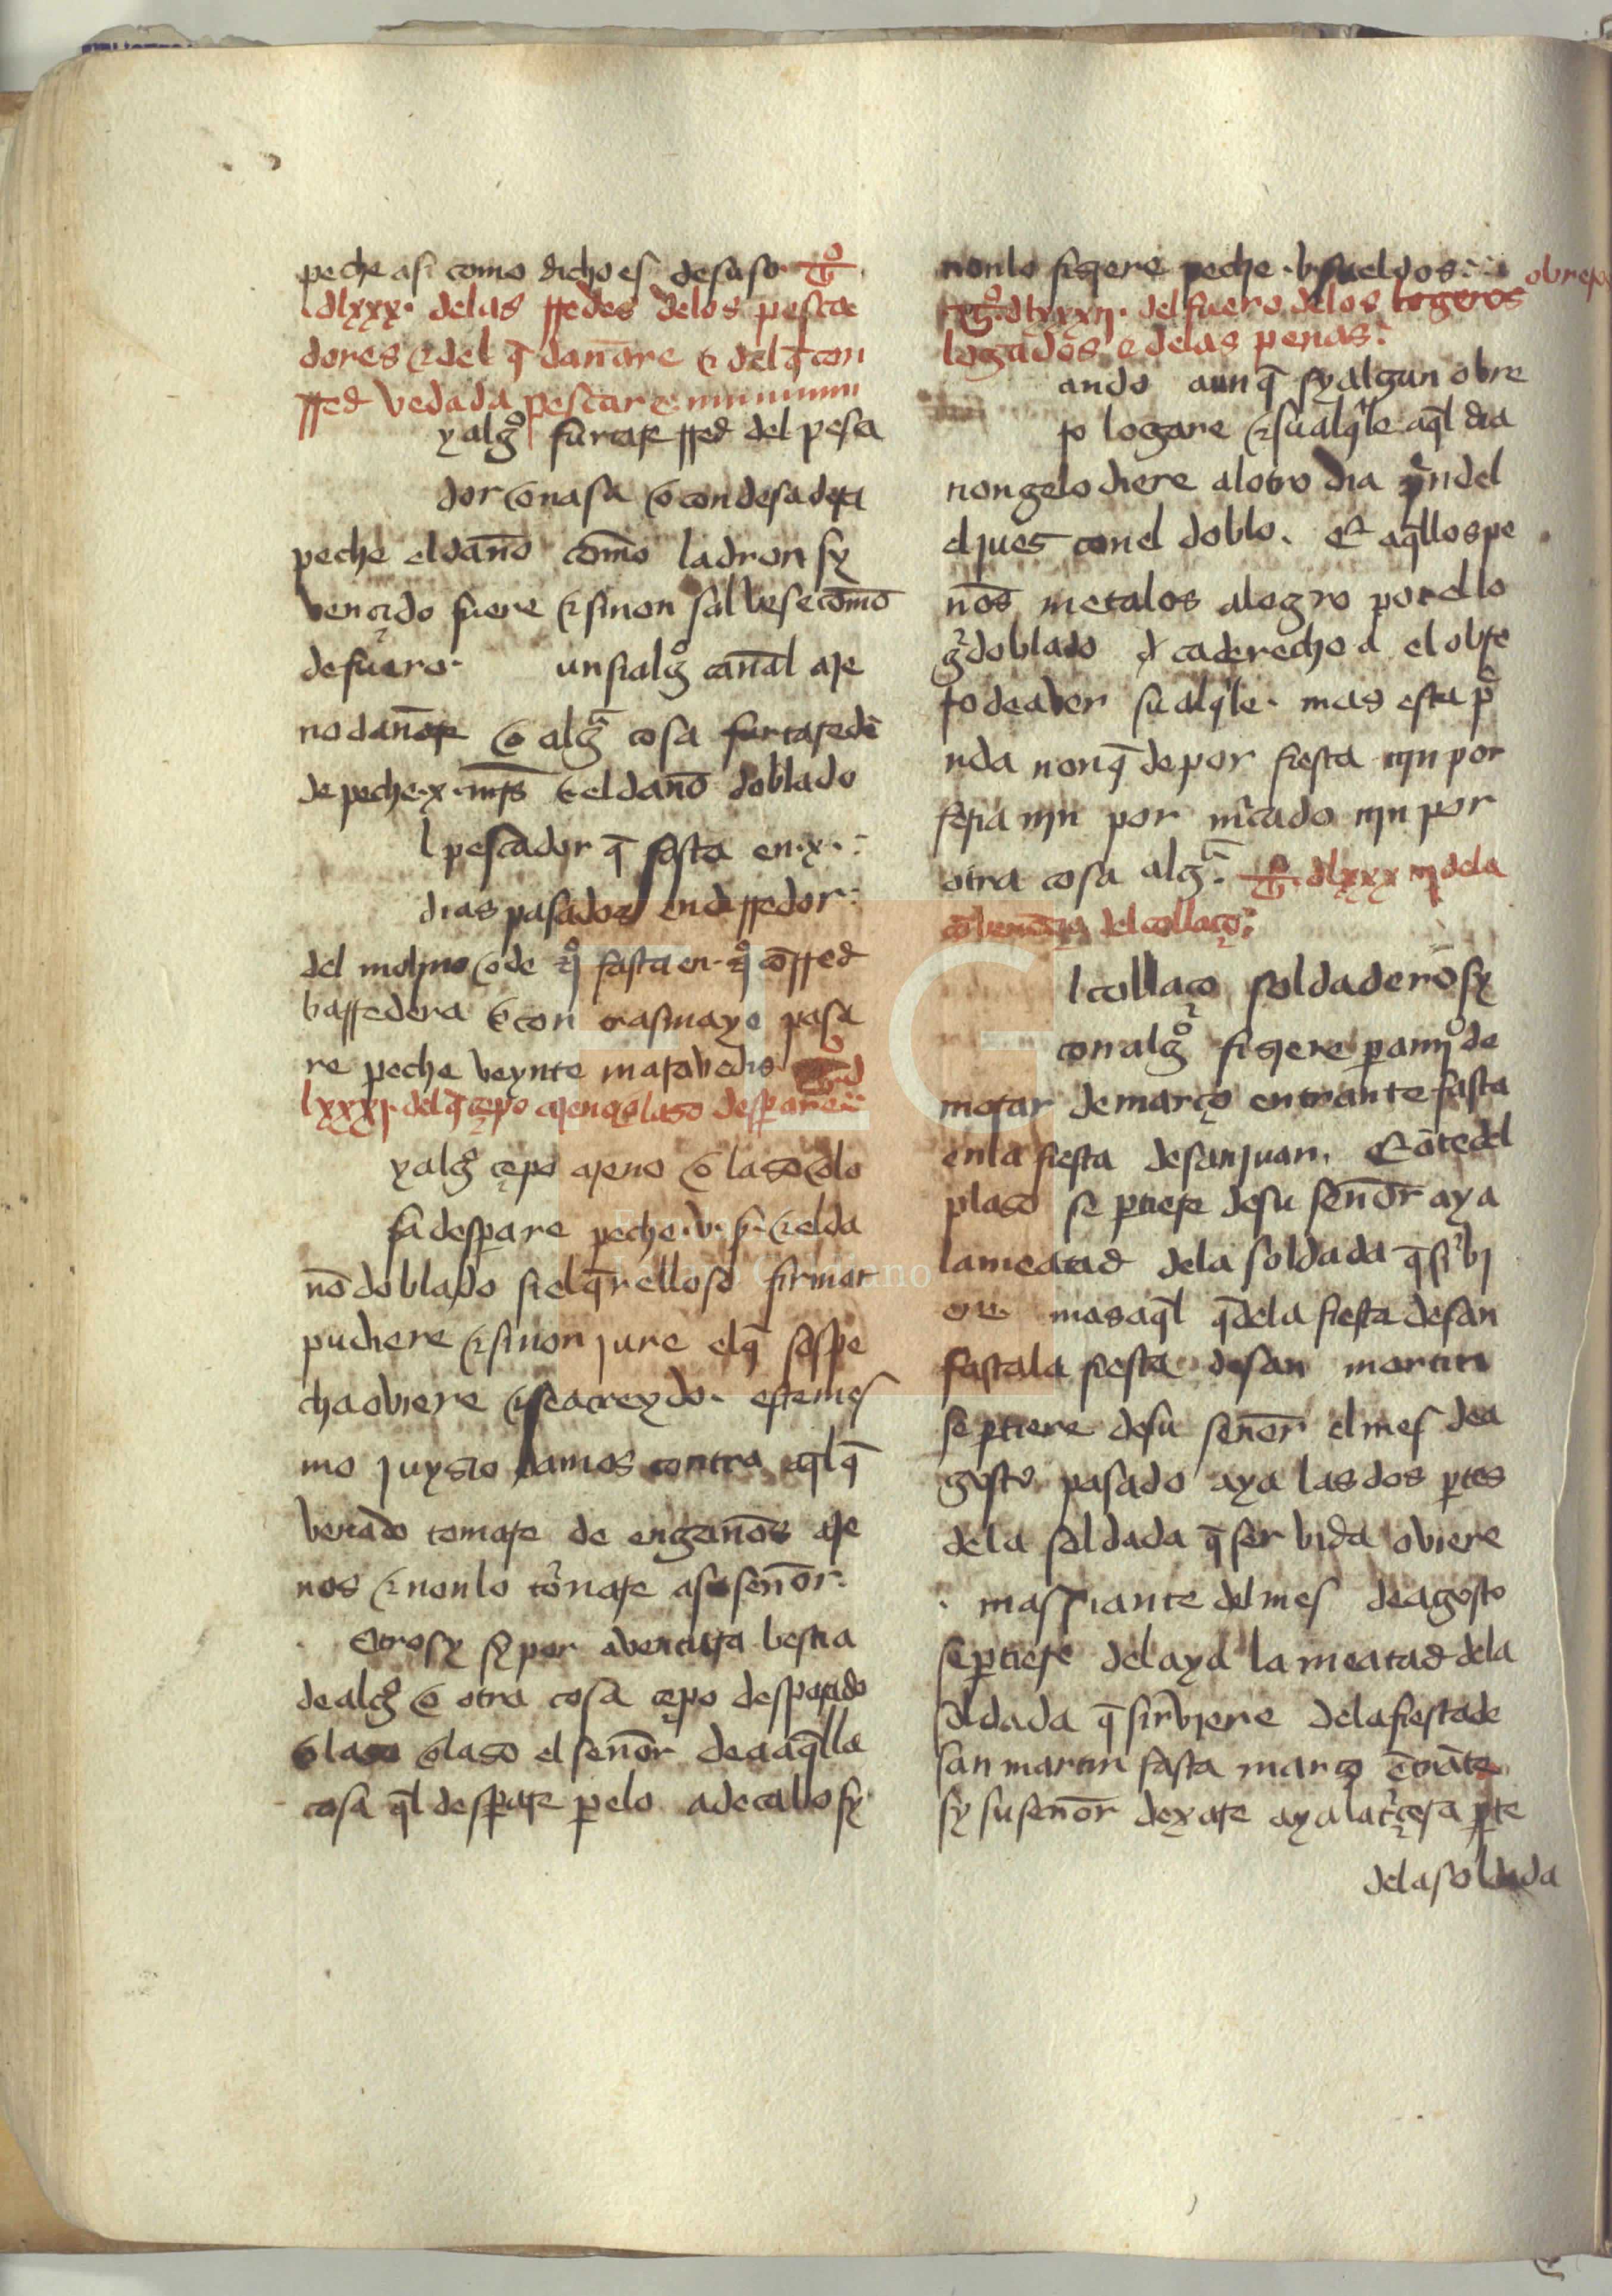 peche asi como dicho es desuso tº
dlxxx. delas rredes delos pesca
dores & del q̄ danare & del q̄ con
rred vedada pescare
y algº furtare rred del pesca
dor o nasa o condesadera
peche el dano como ladron sy
vençido fuere & sinon salvese como
de fuero. un si algº canal aje
no danare o algª cosa furtare dē
de peche .x. mrs & el dano doblado
l pescador q̄ fasta en .x.
dias pasados enderredor
del molino o de fasta en cō rred
barredera & con trasmayo pasa
re peche veynte maravedis
lxxxj. del q̄ çepo ajeno o laso despare
y algº çepo ajeno o laso o lo
sa despare peche .v. s. & el da
no doblado si el q̄relloso firmar
pudiere & sinon jure el q̄ sospe
cha oviere & sea creydo. este mes
mo juysio damos contra aql q̄
venado tomare de enganos aje
nos & non lo tornare a su senor.
Otrosy sy por aventura bestia
de algº o otra cosa çepo desparado
o laso el senor de aaqlla
cosa ql desparare pelo adecabo sy
non lo fisiere peche .v. sueldos
obrero
tº. dlxxxij. del fuero delos logeros
logados e delas penas.
ando aunq̄ sy algun obre
ro logare & su alqle aql dia
non gelo diere al otro dia
el jues con el doblo. Et aqllos pe
nos metalos a logro por ello
doblado derecho a el obre
ro de aver su alqle. mas esta p̄
nda non q̄de por fiesta nin por
feria nin por mrcado nin por
otra cosa algª. tº. dlxxxiij dela
convenençia del collaço.
l collaço soldadero sy
con algº fisiere de
morar de março entrante fasta
en la fiesta de san juan. Et ante del
plaso se ptiere de su senor aya
la meatad dela soldada q̄ sirvj
ere mas aql q̄ dela fiesta de san
fasta la fiesta de san martin
se ptiere de su senor el mes de a
gosto pasado aya las dos ptes
de la soldada q̄ servida oviere
. mas si ante del mes de agosto
se ptiere del aya la meatad dela
soldada q̄ sirvjere dela fiesta de
san martin fasta março ētrāte
sy su senor dexare aya la trçera pte
dela soldada